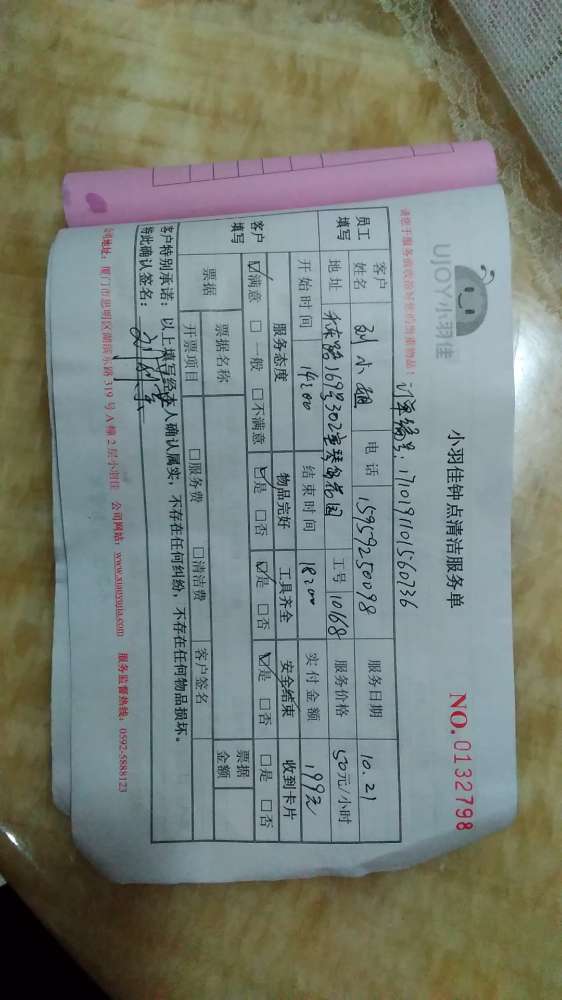 UJOY小羽佳
小羽佳钟点清洁服务单
NO.0132798
请您于服务前收拾好您的贵重物品！
订单编号：171019110156073​6
员工填写
客户姓名 刘小姐 电话 15959250098 服务日期 10.21
地址 禾祥路169号302室琴岛花园 工号 10168 服务价格 50元/小时
开始时间 14:00 结束时间 18:00 实付金额 199元
客户填写
服务态度 物品完好 工具齐全 安全结束 收到卡片
☑满意 □一般 □不满意 ☑是 □否 ☑是 □否 ☑是 □否 □是 □否
票据 票据名称 票据金额
开票项目 □服务费 □清洁费 客户签名
客户特别承诺：以上填写经本人确认属实，不存在任何纠纷，不存在任何物品损坏。
特此确认签名：
公司地址：厦门市思明区湖滨东路319号A幢2层小羽佳 公司网站：www.xiaoyujia.com 服务监督热线：0592-5888123